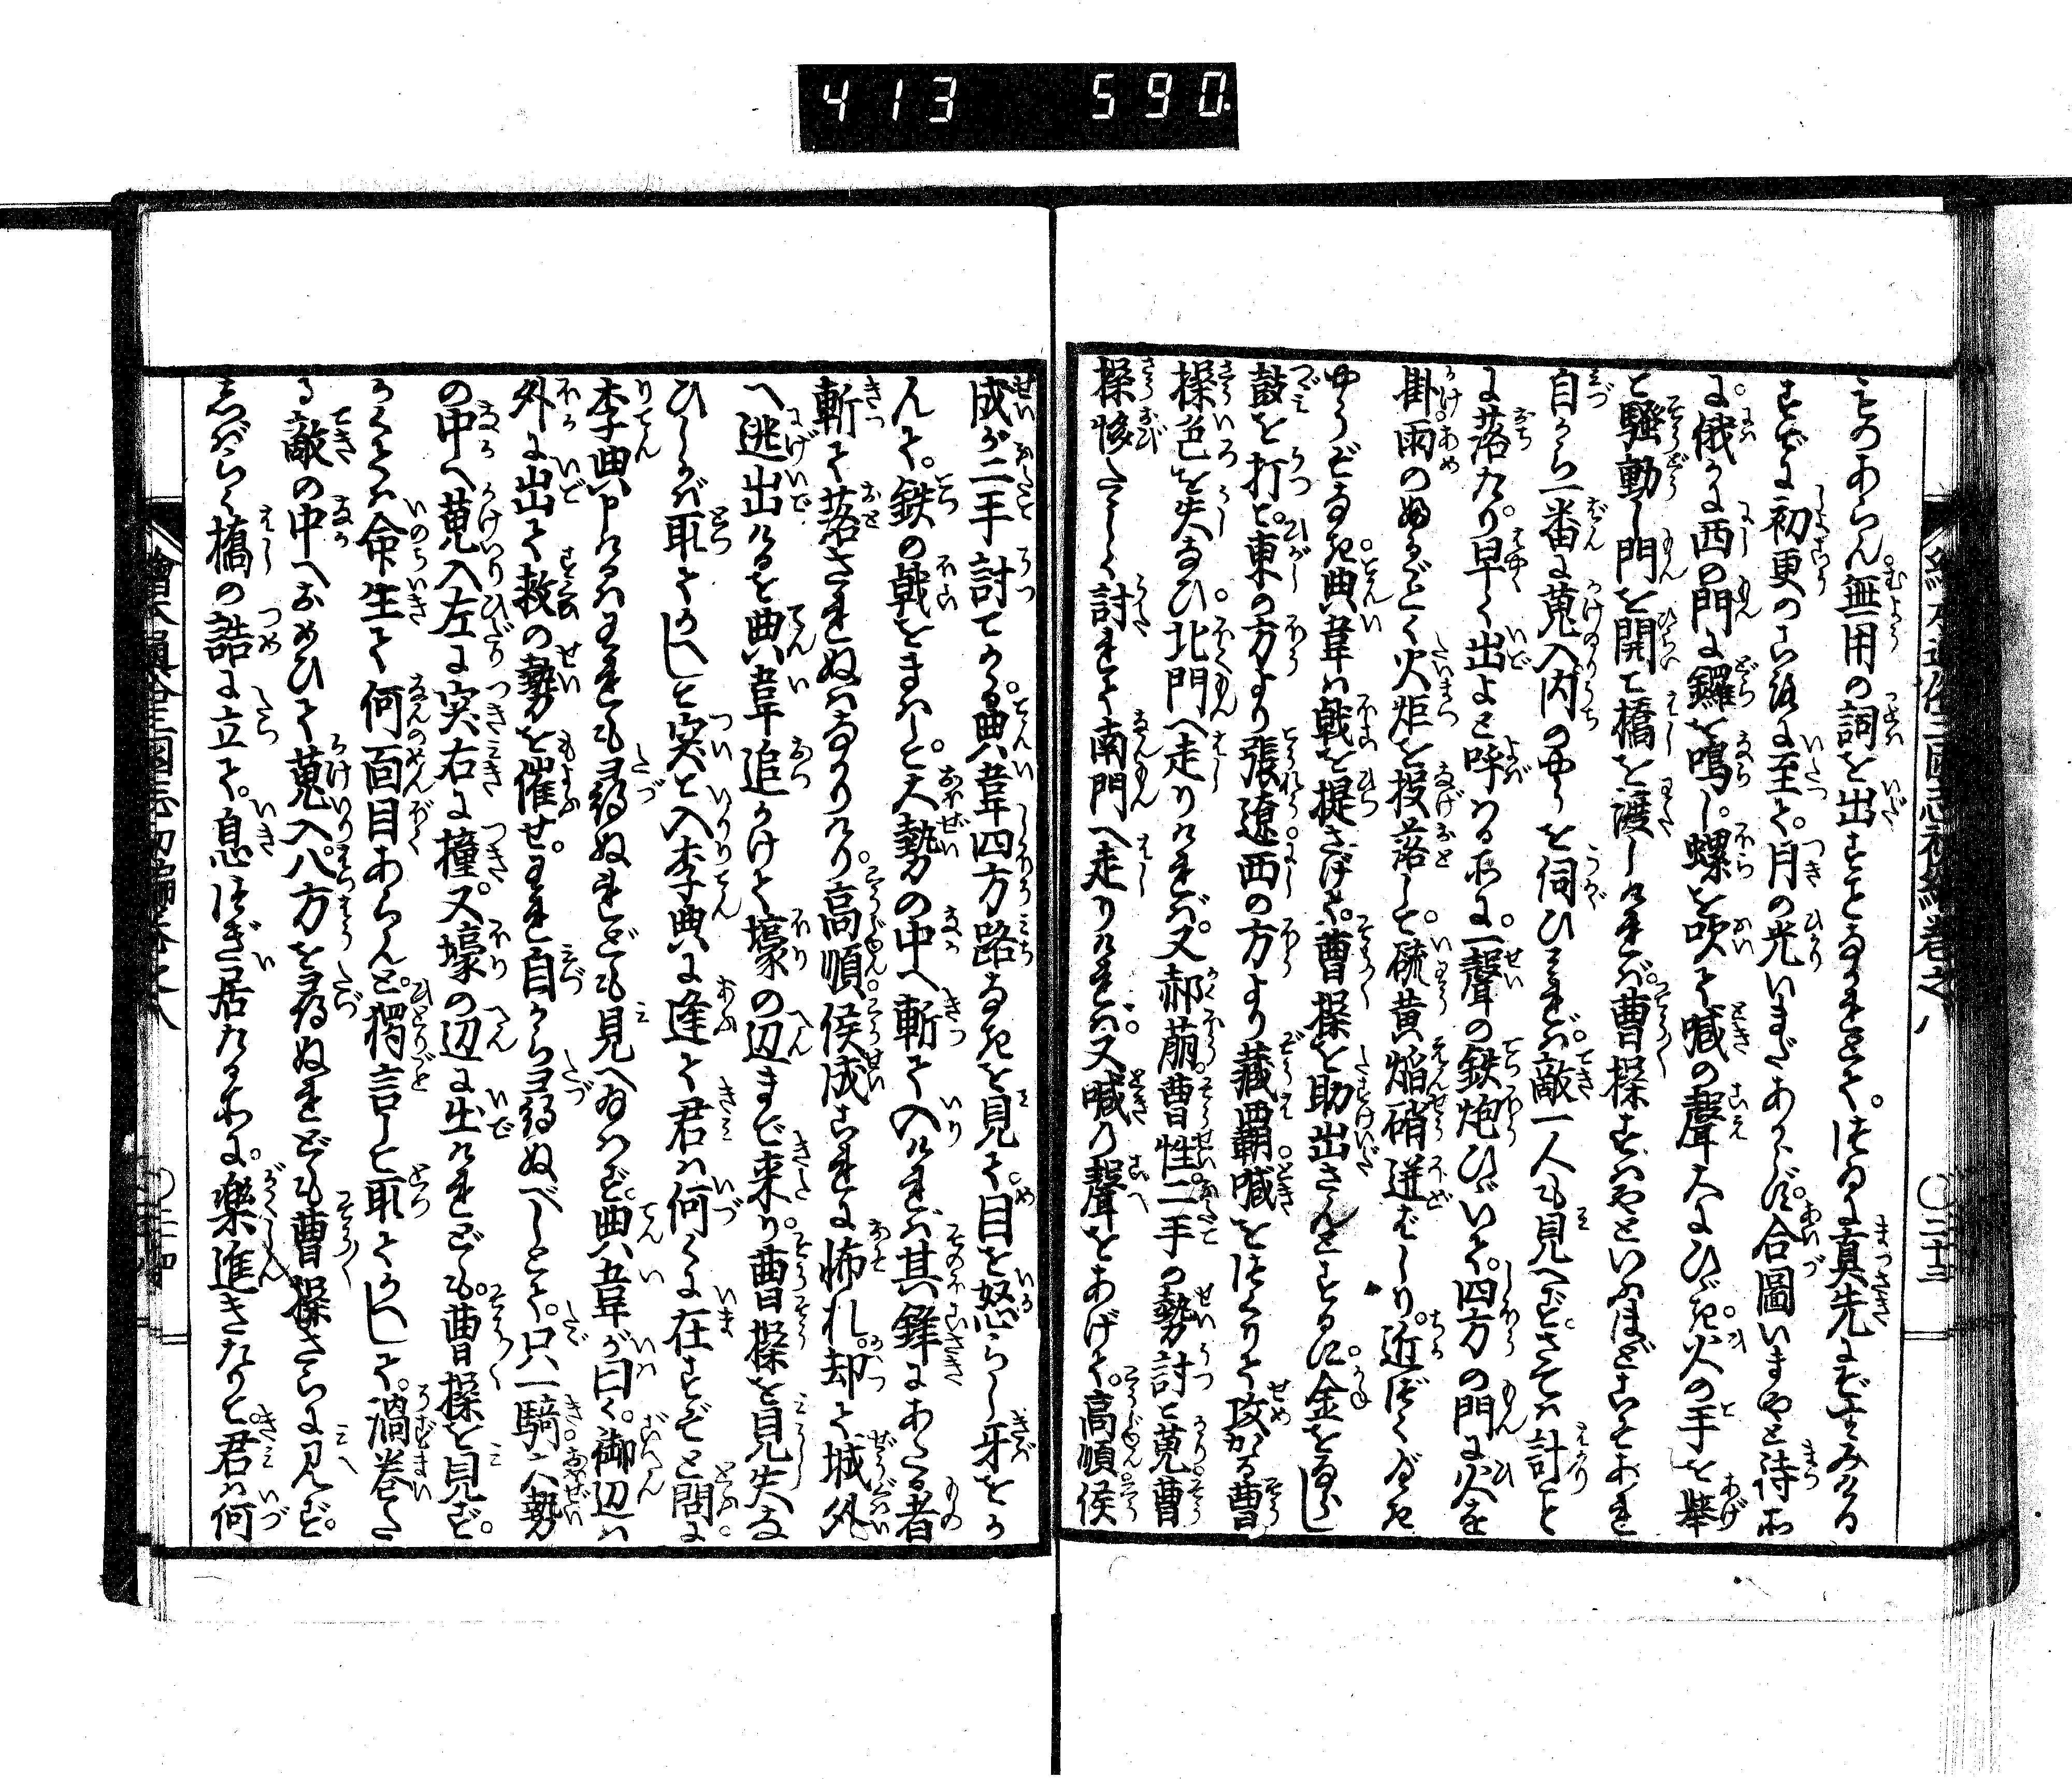 413 590
繪本通俗三國志初編巻之八
○二十三
えのあらん無用の詞を出すことなかれとて。つゐに真先にぞすゝみける
すでに初更のころに至て。月の光いまだあらず。合圖いまやと待所
に。俄かに西の門に鑼を鳴らし。螺を吹て喊の聲大にひゞき。火の手を挙
と騒動し門を開て橋を渡しければ。曹操すはやといふほどこそあれ
自から一番に蒐入内のやうを伺ひみれば。敵一人も見へず。さては計こと
に落たり早く出よと呼はる所に。一聲の鉄炮ひゞいて。四方の門に火を
掛。雨のふるごとく火炬を投落して。硫黄焔硝迸ばしり。近づくべき
やうぞなき。典韋は戟を提さげて。曹操を助出さんとするに。金をならし
鼓を打て。東の方より張遼。西の方より藏覇。喊をつくりて攻かゝる曹
操色を失なひ。北門へ走りければ。又郝萠。曹性。二手の勢討て蒐曹
操恢たゞしく討れて南門へ走りければ。又喊の聲をあげて。高順。侯
成が二手討てかゝる。典韋四方路なきを見て。目を怒らし牙をか
んで。鉄の戟をまはして。大勢の中へ斬て入ければ其鋒にあたる者
斬て落されぬはなかりけり。高順。侯成これに怖れ。却て城外
へ逃出けるを典韋追かけて壕の辺まで来り。曹操を見失な
ひしかば取てかへして突と入李典に逢て君は何くに在すぞと問に
李典申けるはわれも尋ぬれども見へ給はず。典韋が曰く。御辺は
外に出て救の勢を催せ。われ自から尋ぬべしとて。只一騎大勢
の中へ蒐入左に突右に撞。又壕の辺に出けれども。曹操を見ず。
かくては命生て何面目あらんと。獨言して取てかへして。渦巻た
る敵の中へおめひて蒐入。八方を尋ぬれども曹操さらに見へず。
しばらく橋の詰に立て。息つぎ居たる所に。樂進きたりて。君は何
繪本通俗三國志初編巻之八
○二十四